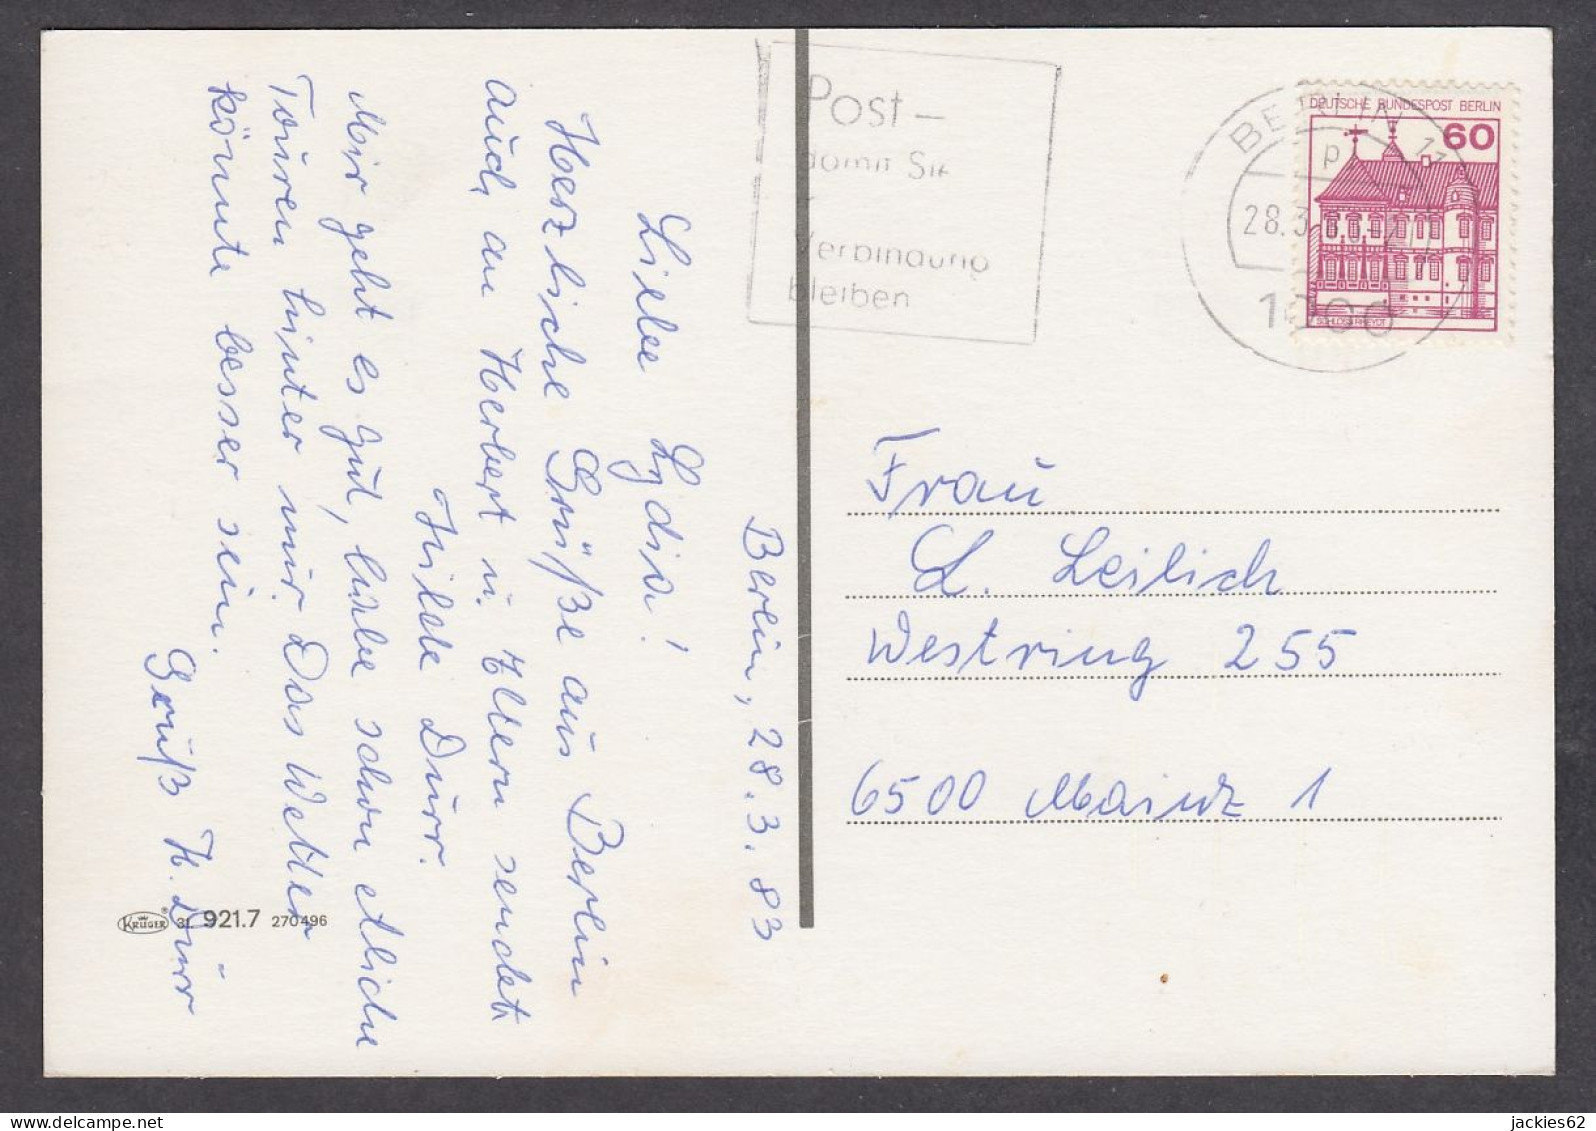 Berlin, 28.3.83
Liebe Lydia!
Herzliche Grüße aus Berlin
auch an Herbert u. Eltern sendet
Hilde Dürr.
Mir geht es gut, habe schon etliche
Touren hinter mir. Das Wetter
könnte besser sein.
Gruß H. Dürr
KRÜGER 921.7 270496
Post –
damit Sie
Verbindung
bleiben
BERLIN 11
p
28.3.
1000
DEUTSCHE BUNDESPOST BERLIN
60
Frau
L. Leilich
Westring 255
6500 Mainz 1
jackies62